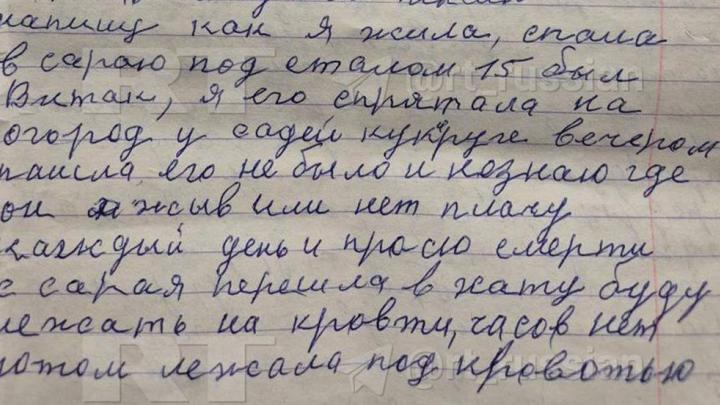 напишу как я жила, спала
в сараю под сталом 15 был
Витак, я его спрятала на
огород у садей кукруге вечером
паишла его не было и нознаю где
он жыв или нет плачу
кажждый день и просю смерти
с сарая перешла в хату буду
лежать на кровти, часов нет
потом лежала под кроватью
RT
@rt_russian
RT
@rt_russian